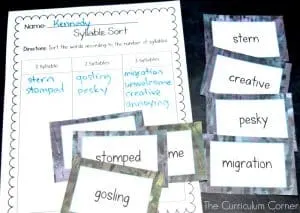 Name: Kennedy
Syllable Sort
Directions: Sort the words according to the number of syllables.
2 Syllables
3 Syllables
stern
gosling
migration
stomped
pesky
unwelcome
creative
annoying
stern
creative
pesky
migration
stomped
me
gosling
The Curriculum Corner